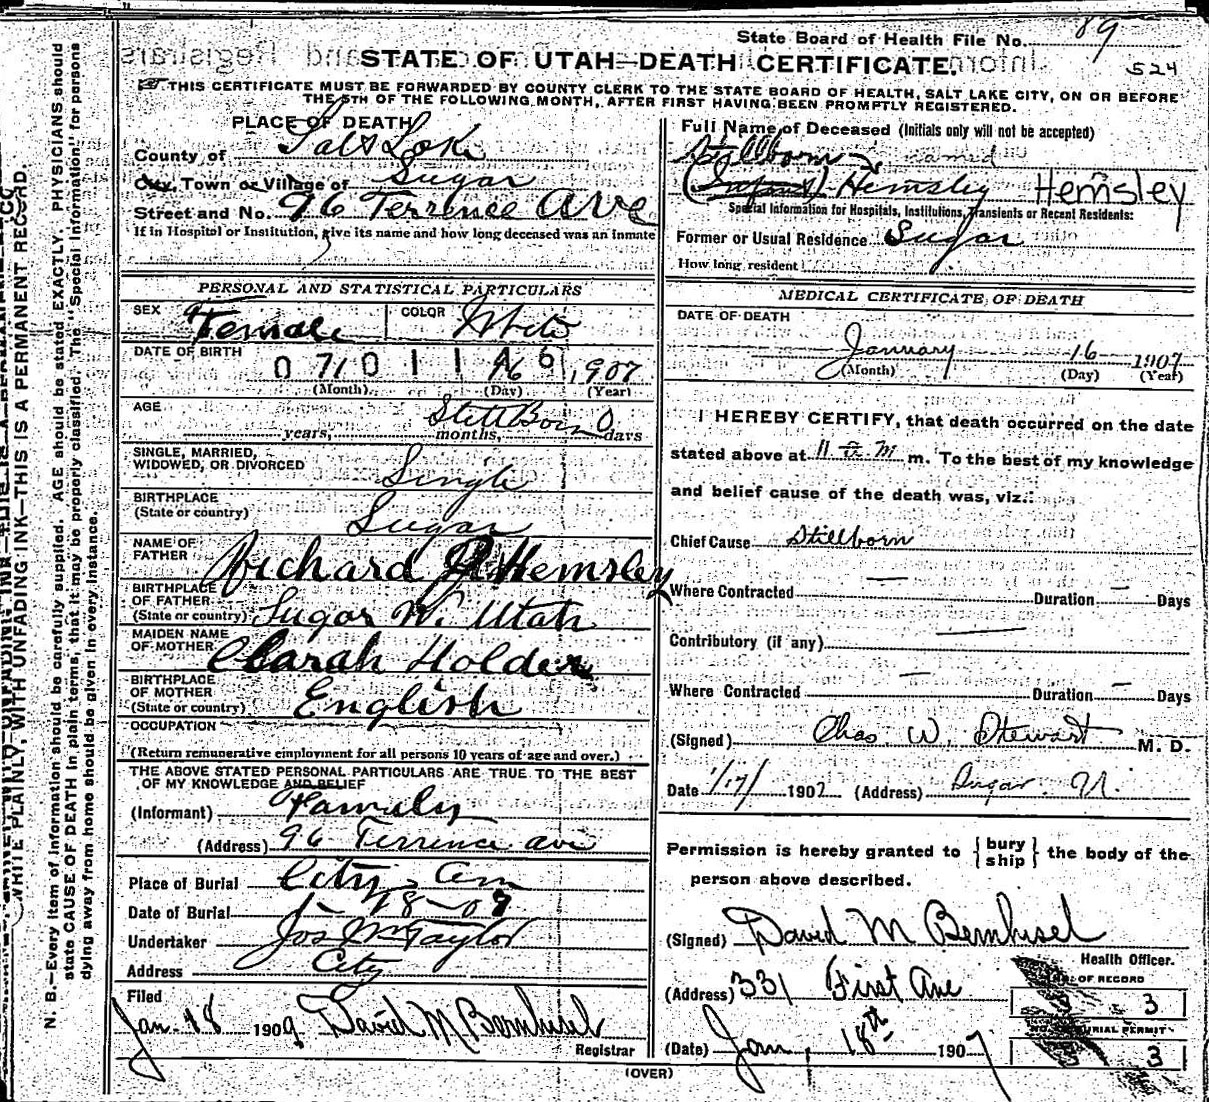 State Board of Health File No. 89
524
STATE OF UTAH—DEATH CERTIFICATE.
THIS CERTIFICATE MUST BE FORWARDED BY COUNTY CLERK TO THE STATE BOARD OF HEALTH, SALT LAKE CITY, ON OR BEFORE
THE 5TH OF THE FOLLOWING MONTH, AFTER FIRST HAVING BEEN PROMPTLY REGISTERED.
PLACE OF DEATH
County of Salt Lake
City, Town or Village of Sugar
Street and No. 96 Terrence Ave
If in Hospital or Institution, give its name and how long deceased was an inmate
PERSONAL AND STATISTICAL PARTICULARS
SEX Female COLOR White
DATE OF BIRTH 0701116 16, 1907
(Month) (Day) (Year)
AGE StillBorn 0
years, months, days
SINGLE, MARRIED,
WIDOWED, OR DIVORCED Single
BIRTHPLACE
(State or country) Sugar
NAME OF
FATHER Richard Hemsley
BIRTHPLACE
OF FATHER
(State or country) Sugar W. Utah
MAIDEN NAME
OF MOTHER Sarah Holden
BIRTHPLACE
OF MOTHER
(State or country) English
OCCUPATION
(Return remunerative employment for all persons 10 years of age and over.)
THE ABOVE STATED PERSONAL PARTICULARS ARE TRUE TO THE BEST
OF MY KNOWLEDGE AND BELIEF
(Informant) Family
(Address) 96 Terrence ave
Place of Burial City Cem
Date of Burial 1-18-07
Undertaker Jos Wm Taylor
Address City
Filed
Jan. 18 1909 David M Bernhisel
Registrar
(OVER)
Full Name of Deceased (Initials only will not be accepted)
Stillborn named
(Infant) Hemsley Hemsley
Special Information for Hospitals, Institutions, Transients or Recent Residents:
Former or Usual Residence Sugar
How long resident
MEDICAL CERTIFICATE OF DEATH
DATE OF DEATH
January 16 1907
(Month) (Day) (Year)
I HEREBY CERTIFY, that death occurred on the date
stated above at 11 a m m. To the best of my knowledge
and belief cause of the death was, viz.:
Chief Cause Stillborn
Where Contracted — Duration — Days
Contributory (if any) —
Where Contracted — Duration — Days
(Signed) Chas. W. Stewart M. D.
Date 1/17/ 1907 (Address) Sugar
Permission is hereby granted to { bury ship } the body of the
person above described.
(Signed) David M Bernhisel
Health Officer.
(Address) 331 First Ave
(Date) Jan, 18th 1907
OF RECORD
3 3
BURIAL PERMIT
3
WRITE PLAINLY, WITH UNFADING INK—THIS IS A PERMANENT RECORD.
N. B.—Every item of information should be carefully supplied. AGE should be stated EXACTLY. PHYSICIANS should
state CAUSE OF DEATH in plain terms, that it may be properly classified. The "Special Information" for persons
dying away from home should be given in every instance.